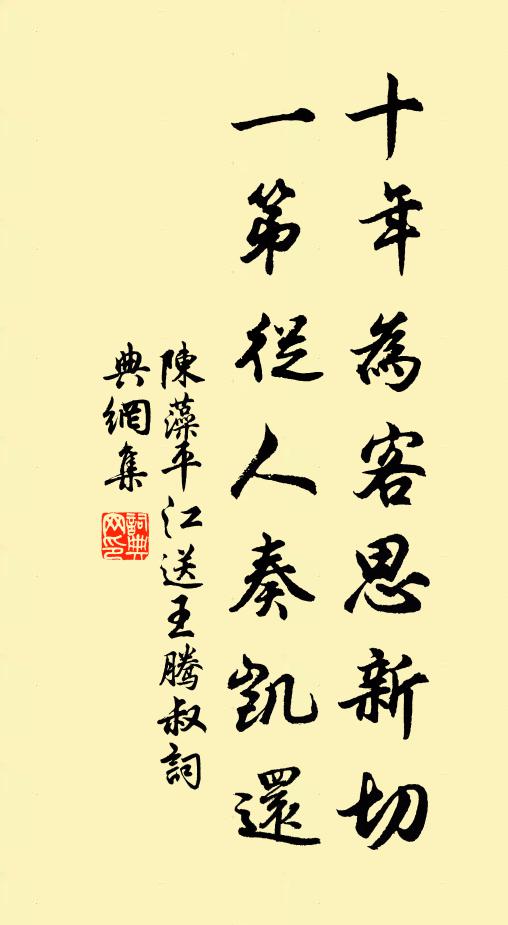 十年為客思新切
一第從人奏凱還
陳藻平江送王騰叔詞
典網集
詞典
网印